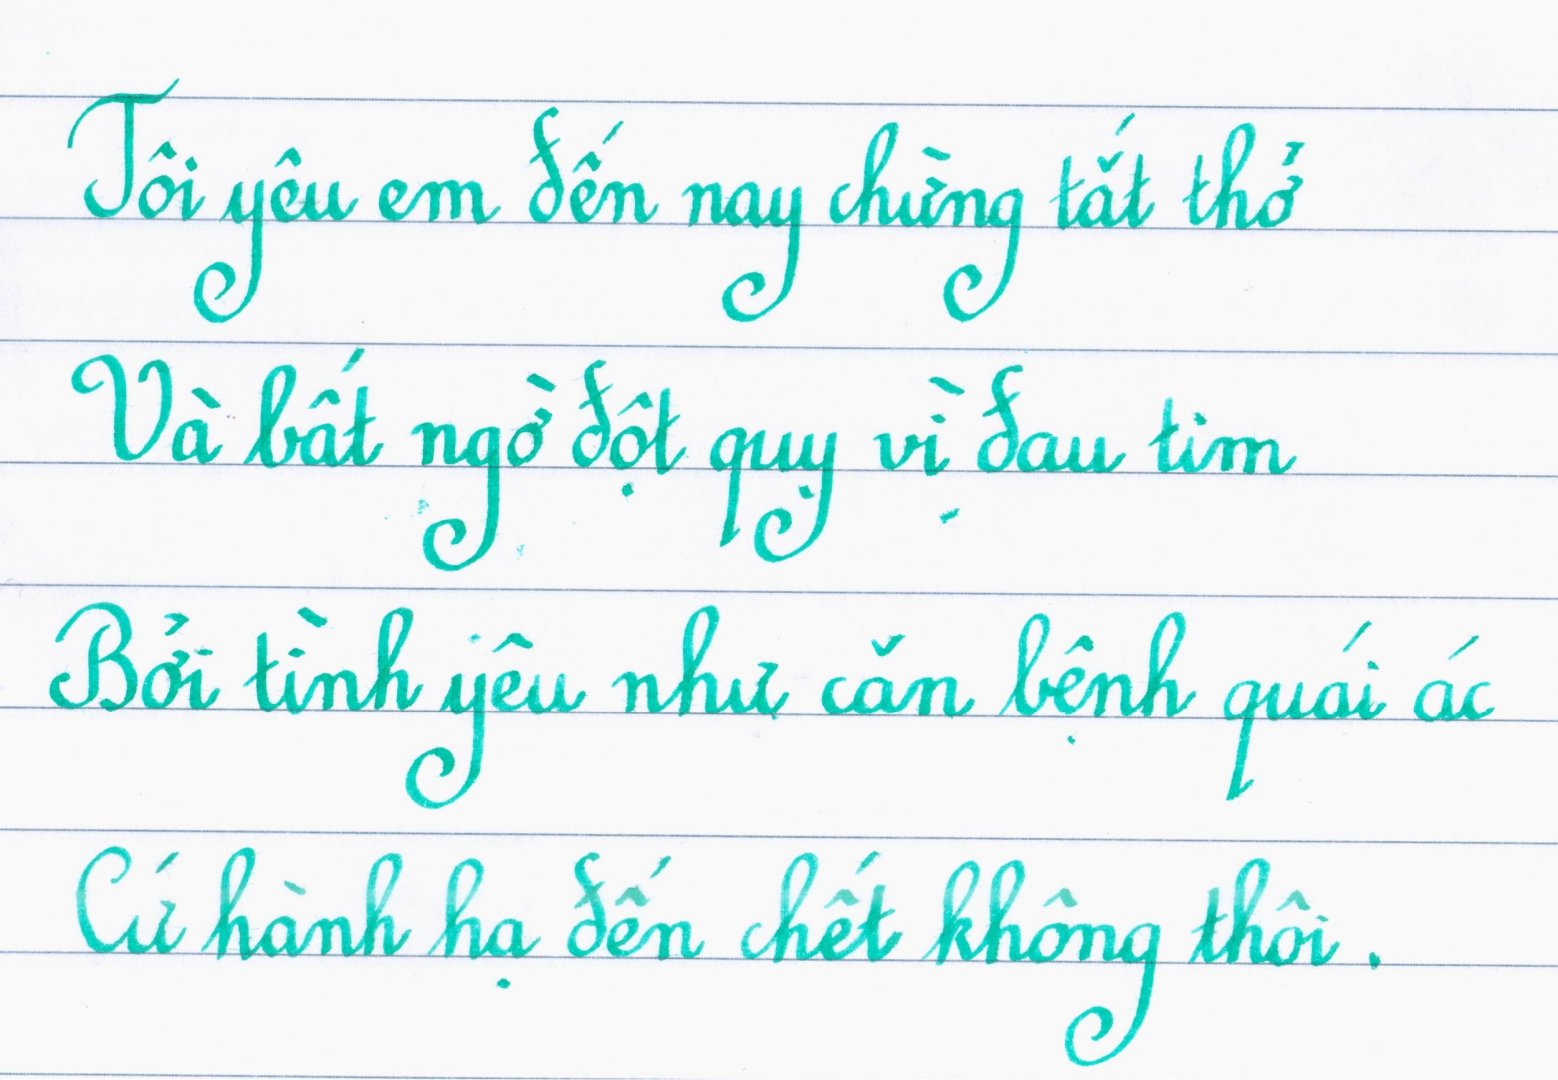 Tôi yêu em đến nay chừng tắt thở
Và bất ngờ đột quỵ vì đau tim
Bởi tình yêu như căn bệnh quái ác
Cứ hành hạ đến chết không thôi.